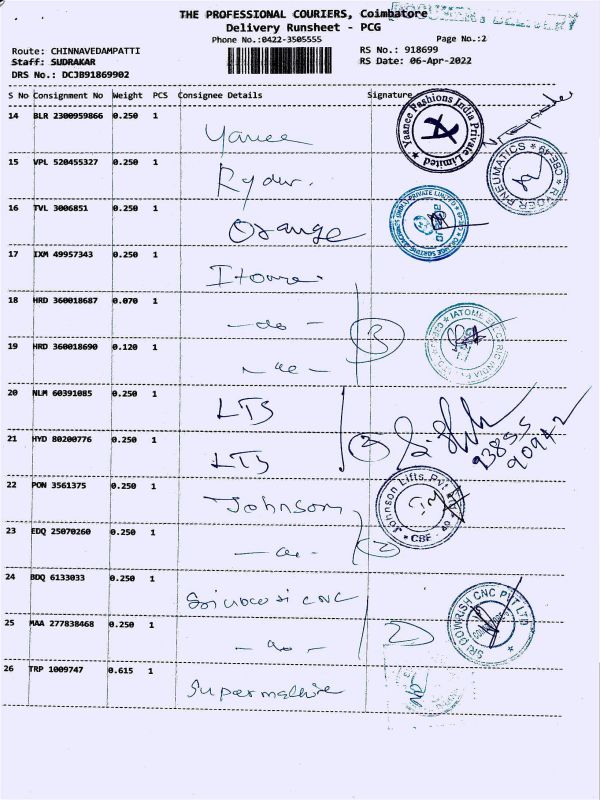 THE PROFESSIONAL COURIERS, Coimbatore
Delivery Runsheet - PCG
Phone No.:0422-3505555
Page No.:2
Route: CHINNAVEDAMPATTI
RS No.: 918699
Staff: SUDRAKAR
RS Date: 06-Apr-2022
DRS No.: DCJB91869902
S No Consignment No Weight PCS Consignee Details Signature
14 BLR 2300959866 0.250 1 Yanee
Yaance Fashions India Private Limited
15 VPL 520455327 0.250 1 Ryder.
RYDER PNEUMATICS * CBE-49 *
16 TVL 3006851 0.250 1 Orange
17 IXM 49957343 0.250 1
18 HRD 360018687 0.070 1 - do - 3
IATOME ELECTRIC INDIA
19 HRD 360018690 0.120 1
20 NLM 60391085 0.250 1 LTS
21 HYD 80200776 0.250 1 LTS
93855
90942
22 PON 3561375 0.250 1 Johnson
Johnson Lifts Pvt
* CBE -
23 EDQ 25070260 0.250 1 2
24 BDQ 6133033 0.250 1 CNC
CNC PVT LTD
25 MAA 277838468 0.250 1 - do - 2
26 TRP 1009747 0.615 1